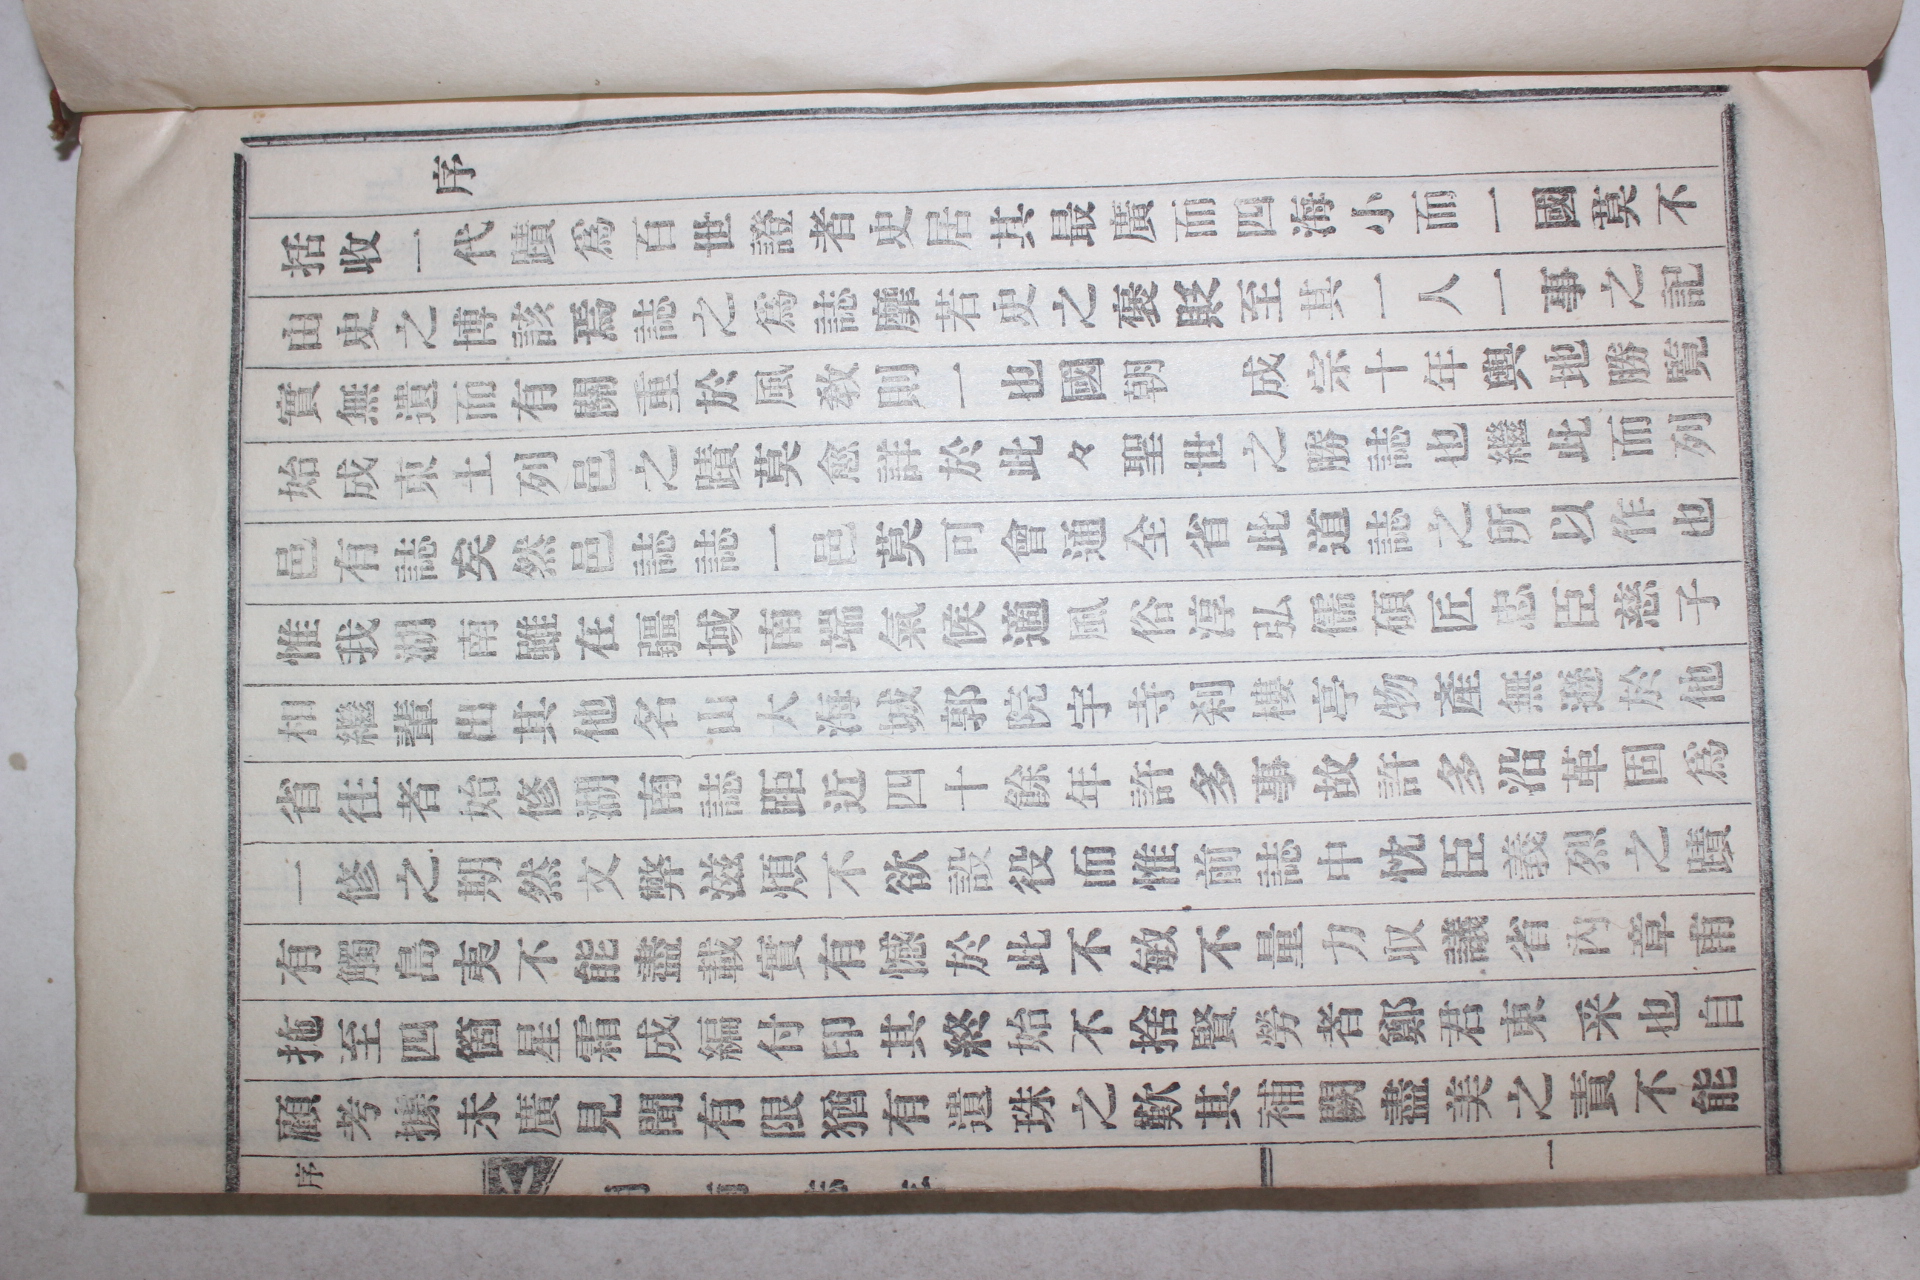 序
括收一代蹟爲百世證者史居其最廣而四海小而一國莫不
由史之博該焉誌之爲誌靡若史之褒貶至其一人一事之記
實無遺而有關重於風敎則一也國朝 成宗十年輿地勝覽
始成東土列邑之蹟莫愈詳於此々聖世之勝誌也繼此而列
邑有誌矣然邑誌誌一邑莫可會通全省此道誌之所以作也
惟我湖南雖在疆域南端氣候適風俗淳弘儒碩匠忠臣慈子
相繼輩出其他名山大海城郭院宇寺刹樓亭物產無遜於他
省往者始修湖南誌距近四十餘年許多事故許多沿革固爲
一修之期然文弊滋煩不欲設役而惟前誌中忱臣義烈之蹟
有觸島夷不能盡載實有憾於此不敏不量力収議省內章甫
拖至四箇星霜成編付印其終始不捨賢勞者鄭君東采也自
顧考據未廣見聞有限猶有遺珠之歎其補闕盡美之責不能
序
一